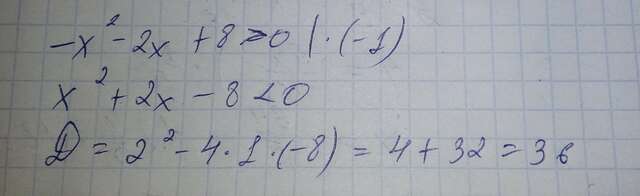 -x² - 2x + 8 > 0 | · (-1)
x² + 2x - 8 < 0
D = 2² - 4 · 1 · (-8) = 4 + 32 = 36